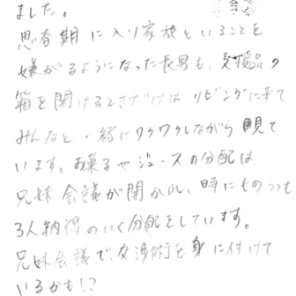 ました。
思春期に入り家族といることを
嫌がるようになった長男も、交換品の
箱を開けるときだけは リビングに来て
みんなと一緒にワクワクしながら 見て
います。お菓子やジュースの分配は
兄妹会議が開かれ、時にもめつつも
3人納得のいく分配をしています。
兄妹会議で、交渉術を身に付けて
いるかも!?